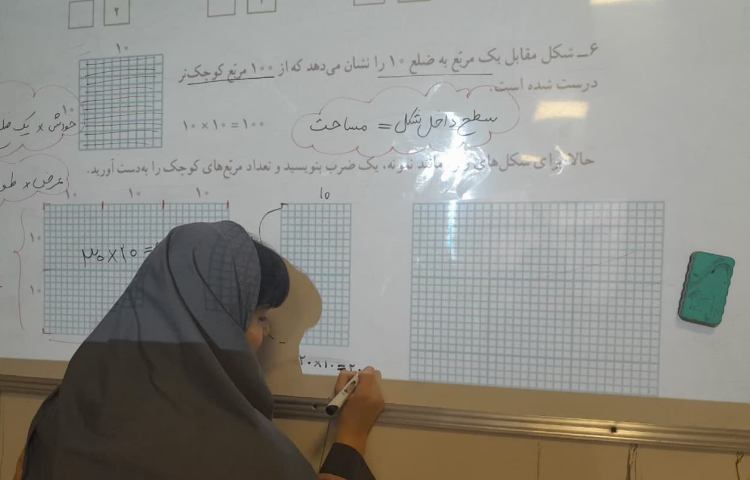 ۲ ۱
۶ــ شکل مقابل یک مربّع به ضلع ۱۰ را نشان می‌دهد که از ۱۰۰ مربّع کوچک‌تر
درست شده است.
۱۰
۱۰
۱۰ × ۱۰ = ۱۰۰
سطح داخل شکل = مساحت
خودش × یک
عرض ×
حالا برای شکل‌های مانند نمونه، یک ضرب بنویسید و تعداد مربّع‌های کوچک را به‌دست آورید.
۱۰ ۱۰ ۱۰
۱۰
۱۰
۳۰ × ۲۰ =
۱۰
۲۰ × ۱۰ = ۲۰